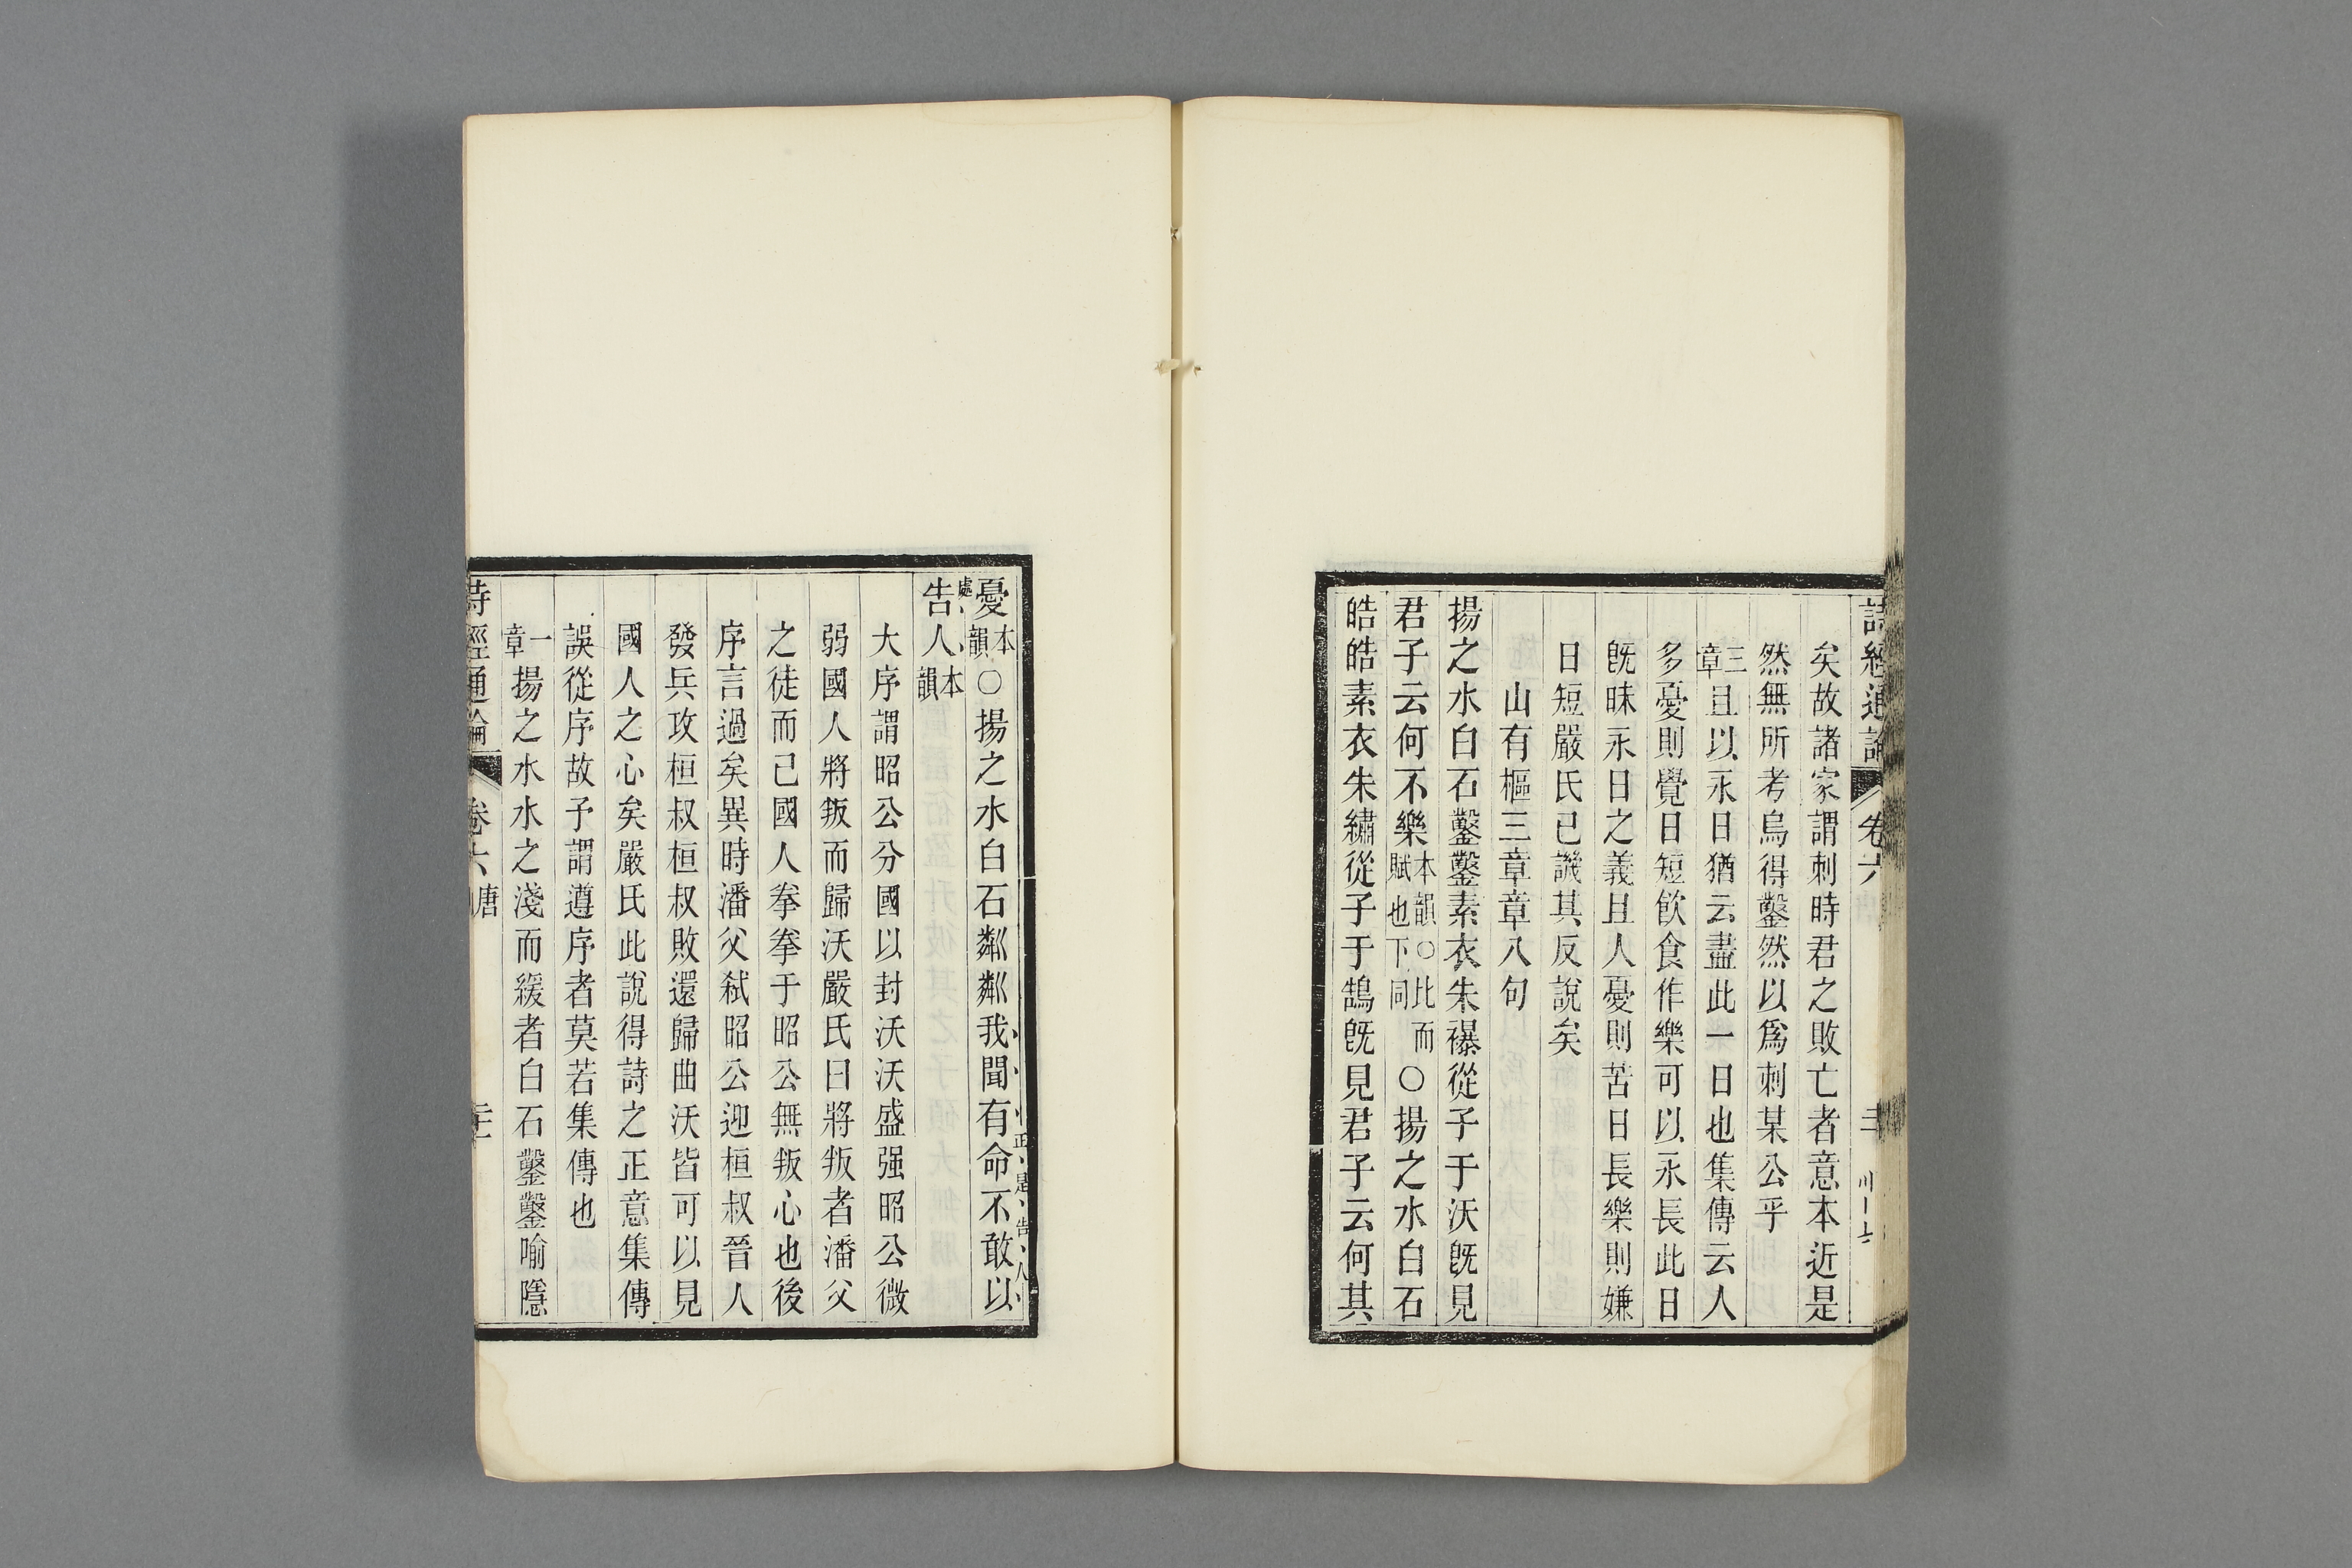 詩經通論 卷六
矣故諸家謂刺時君之敗亡者意本近是
然無所考烏得鑿然以爲刺某公乎
三章且以永日猶云盡此一日也集傳云人
多憂則覺日短飮食作樂可以永長此日
旣昧永日之義且人憂則苦日長樂則嫌
日短嚴氏已譏其反說矣
山有樞三章章八句
揚之水白石鑿鑿素衣朱襮從子于沃旣見
君子云何不樂本韻○比而賦也下同○揚之水白石
皓皓素衣朱繡從子于鵠旣見君子云何其
憂本韻○揚之水白石粼粼我聞有命不敢以
正是告人處
告人本韻
大序謂昭公分國以封沃沃盛强昭公微
弱國人將叛而歸沃嚴氏曰將叛者潘父
之徒而已國人拳拳于昭公無叛心也後
序言過矣異時潘父弒昭公迎桓叔晉人
發兵攻桓叔桓叔敗還歸曲沃皆可以見
國人之心矣嚴氏此說得詩之正意集傳
誤從序故予謂遵序者莫若集傳也
一章揚之水水之淺而緩者白石鑿鑿喻隱
詩經通論 卷六 唐